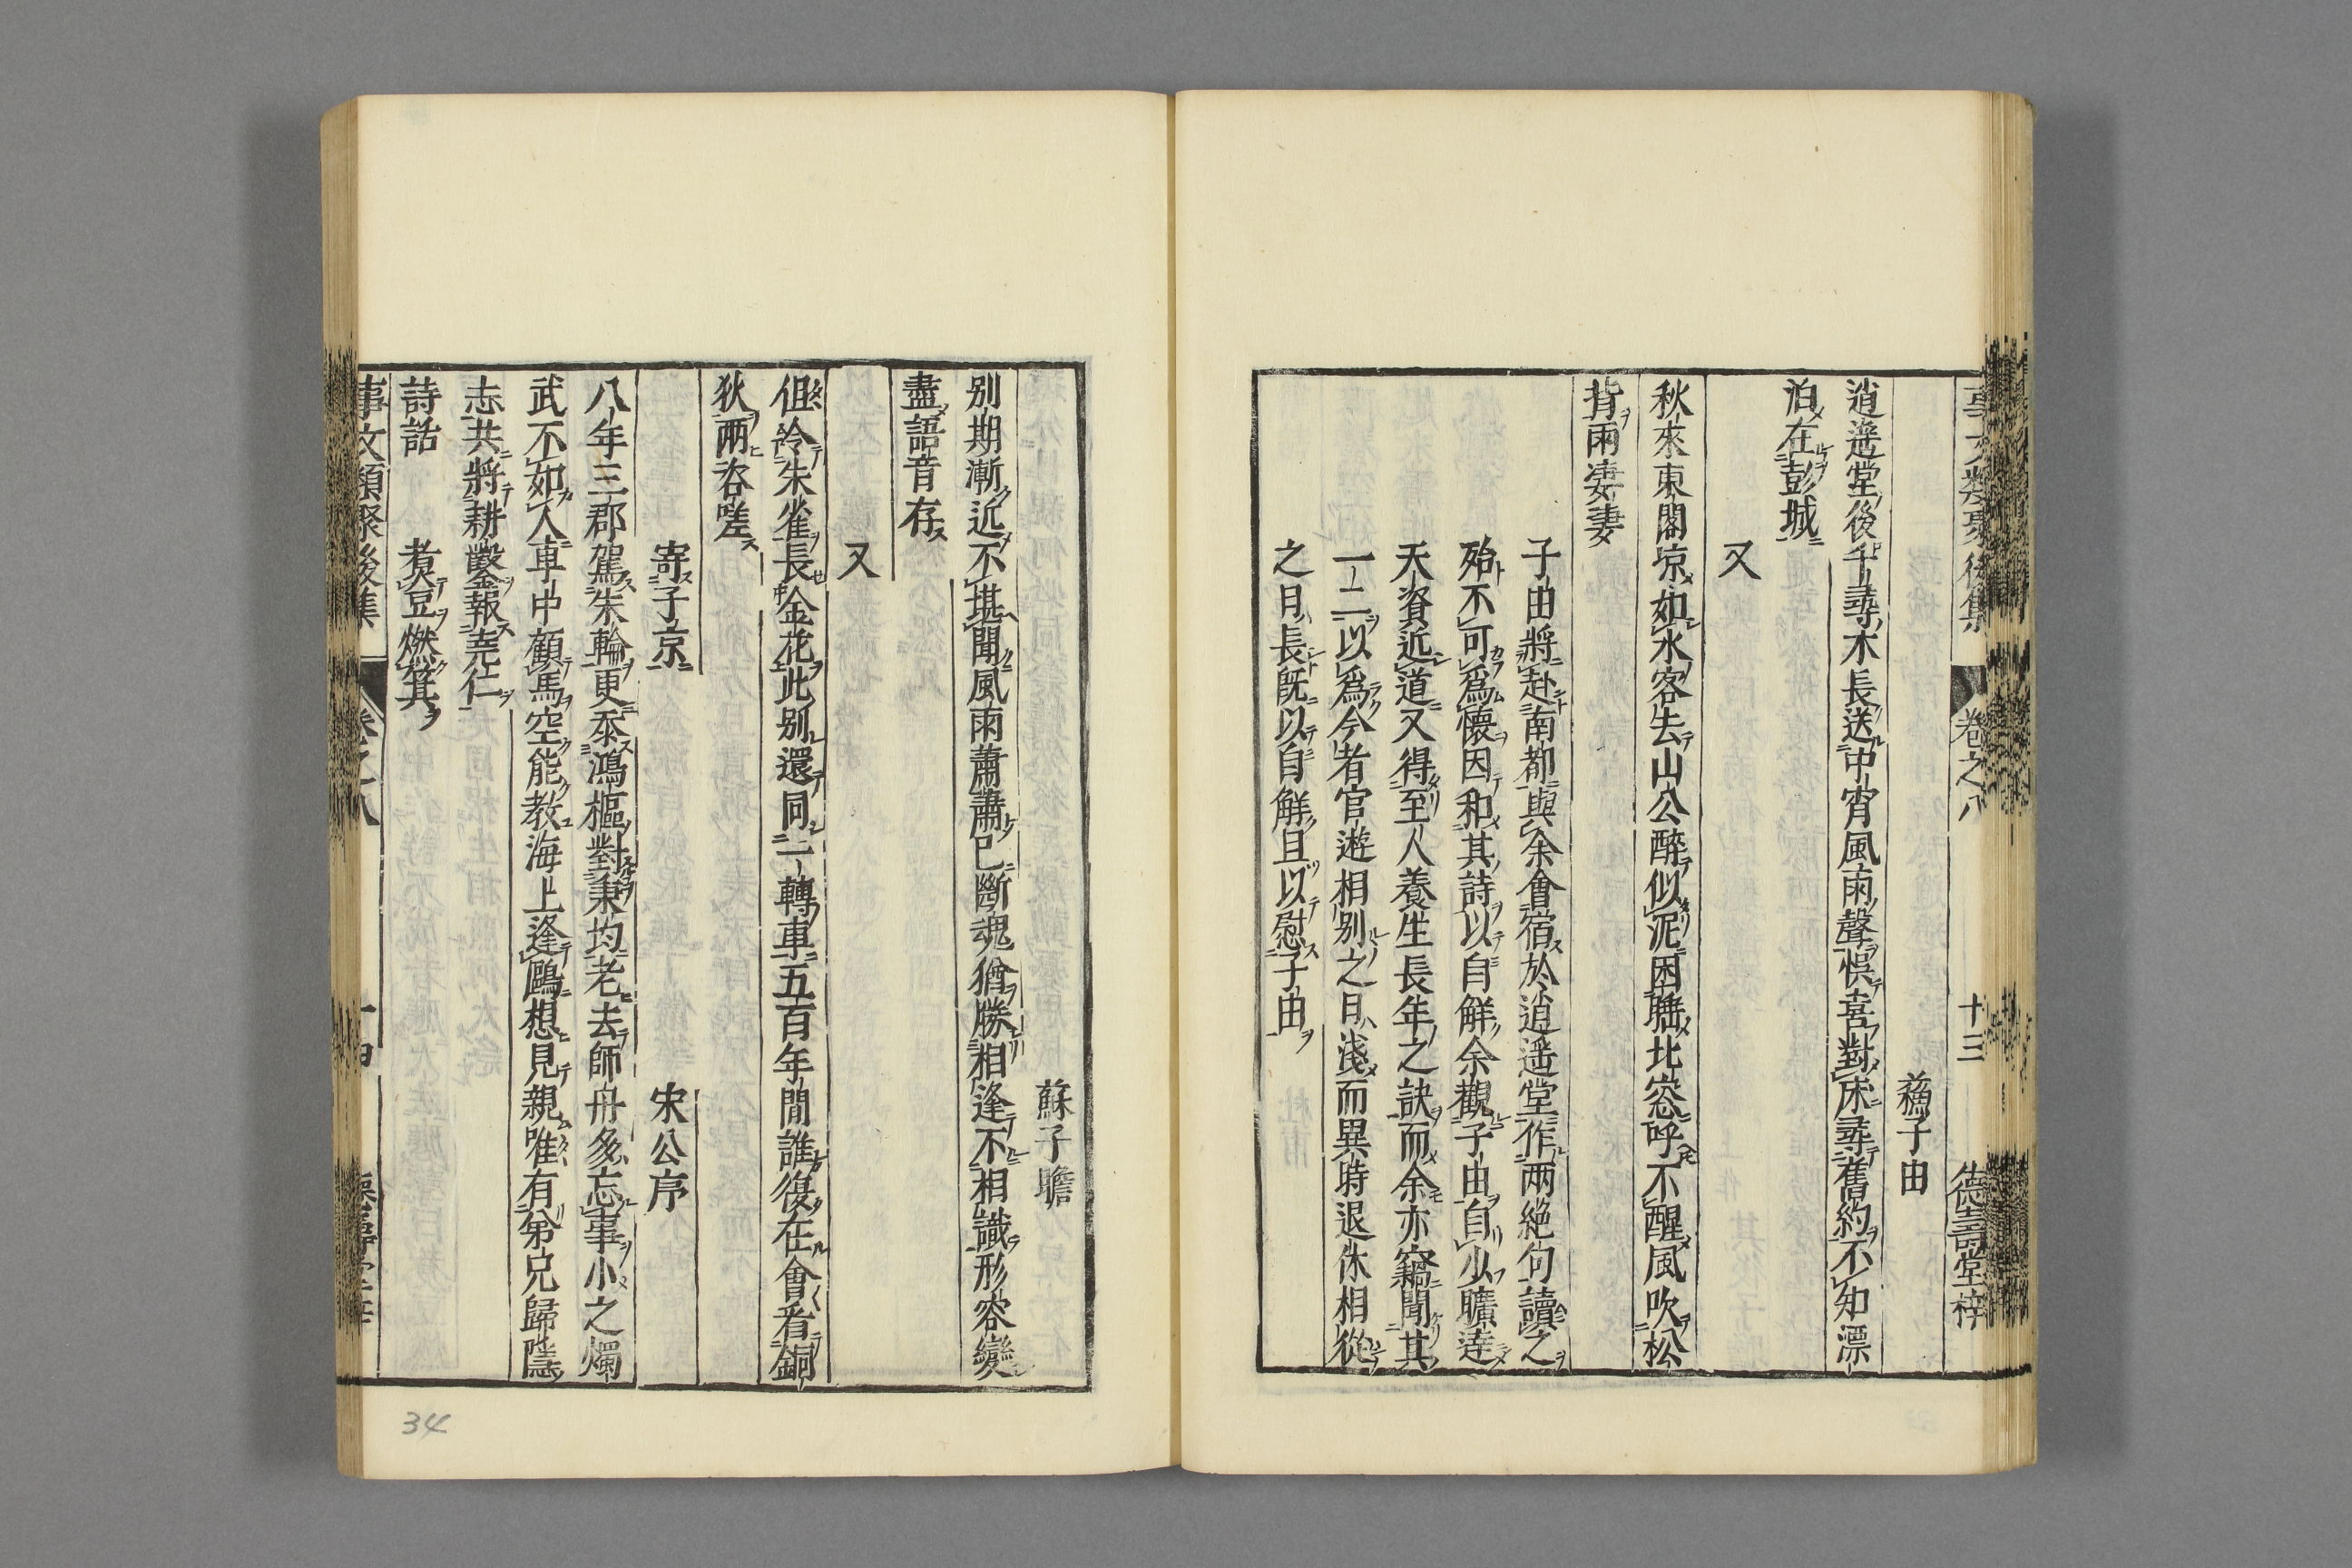 事文類聚後集 卷之八 十三 德壽堂梓
蘇子由
逍遥堂後千尋木長送中宵風雨聲悞喜對床尋舊約不知漂
泊在彭城
又
秋來東閣凉如水客去山公醉似泥困臥北窓呼不醒風吹松
竹雨淒淒
子由將赴南都與余會宿於逍遥堂作兩絶句讀之
殆不可爲懷因和其詩以自解余觀子由自少曠達
天資近道又得至人養生長年之訣而余亦竊聞其
一二以爲今者官遊相别之日淺而異時退休相從
之日長既以自解且以慰子由
蘇子瞻
别期漸近不堪聞風雨蕭蕭已斷魂猶勝相逢不相識形容變
盡語音存
又
但令朱雀長金花此别還同一轉車五百年間誰復在會看銅
狄兩咨嗟
寄子京
宋公序
八年三郡駕朱輪更忝鴻樞對秉均老去師丹多忘事小之燭
武不如人車中顧馬空能教海上逢鷗想見親唯有弟兄歸隱
志共將耕鑿報堯仁
詩話
煮豆燃萁
事文類聚後集 卷之八 十四
34